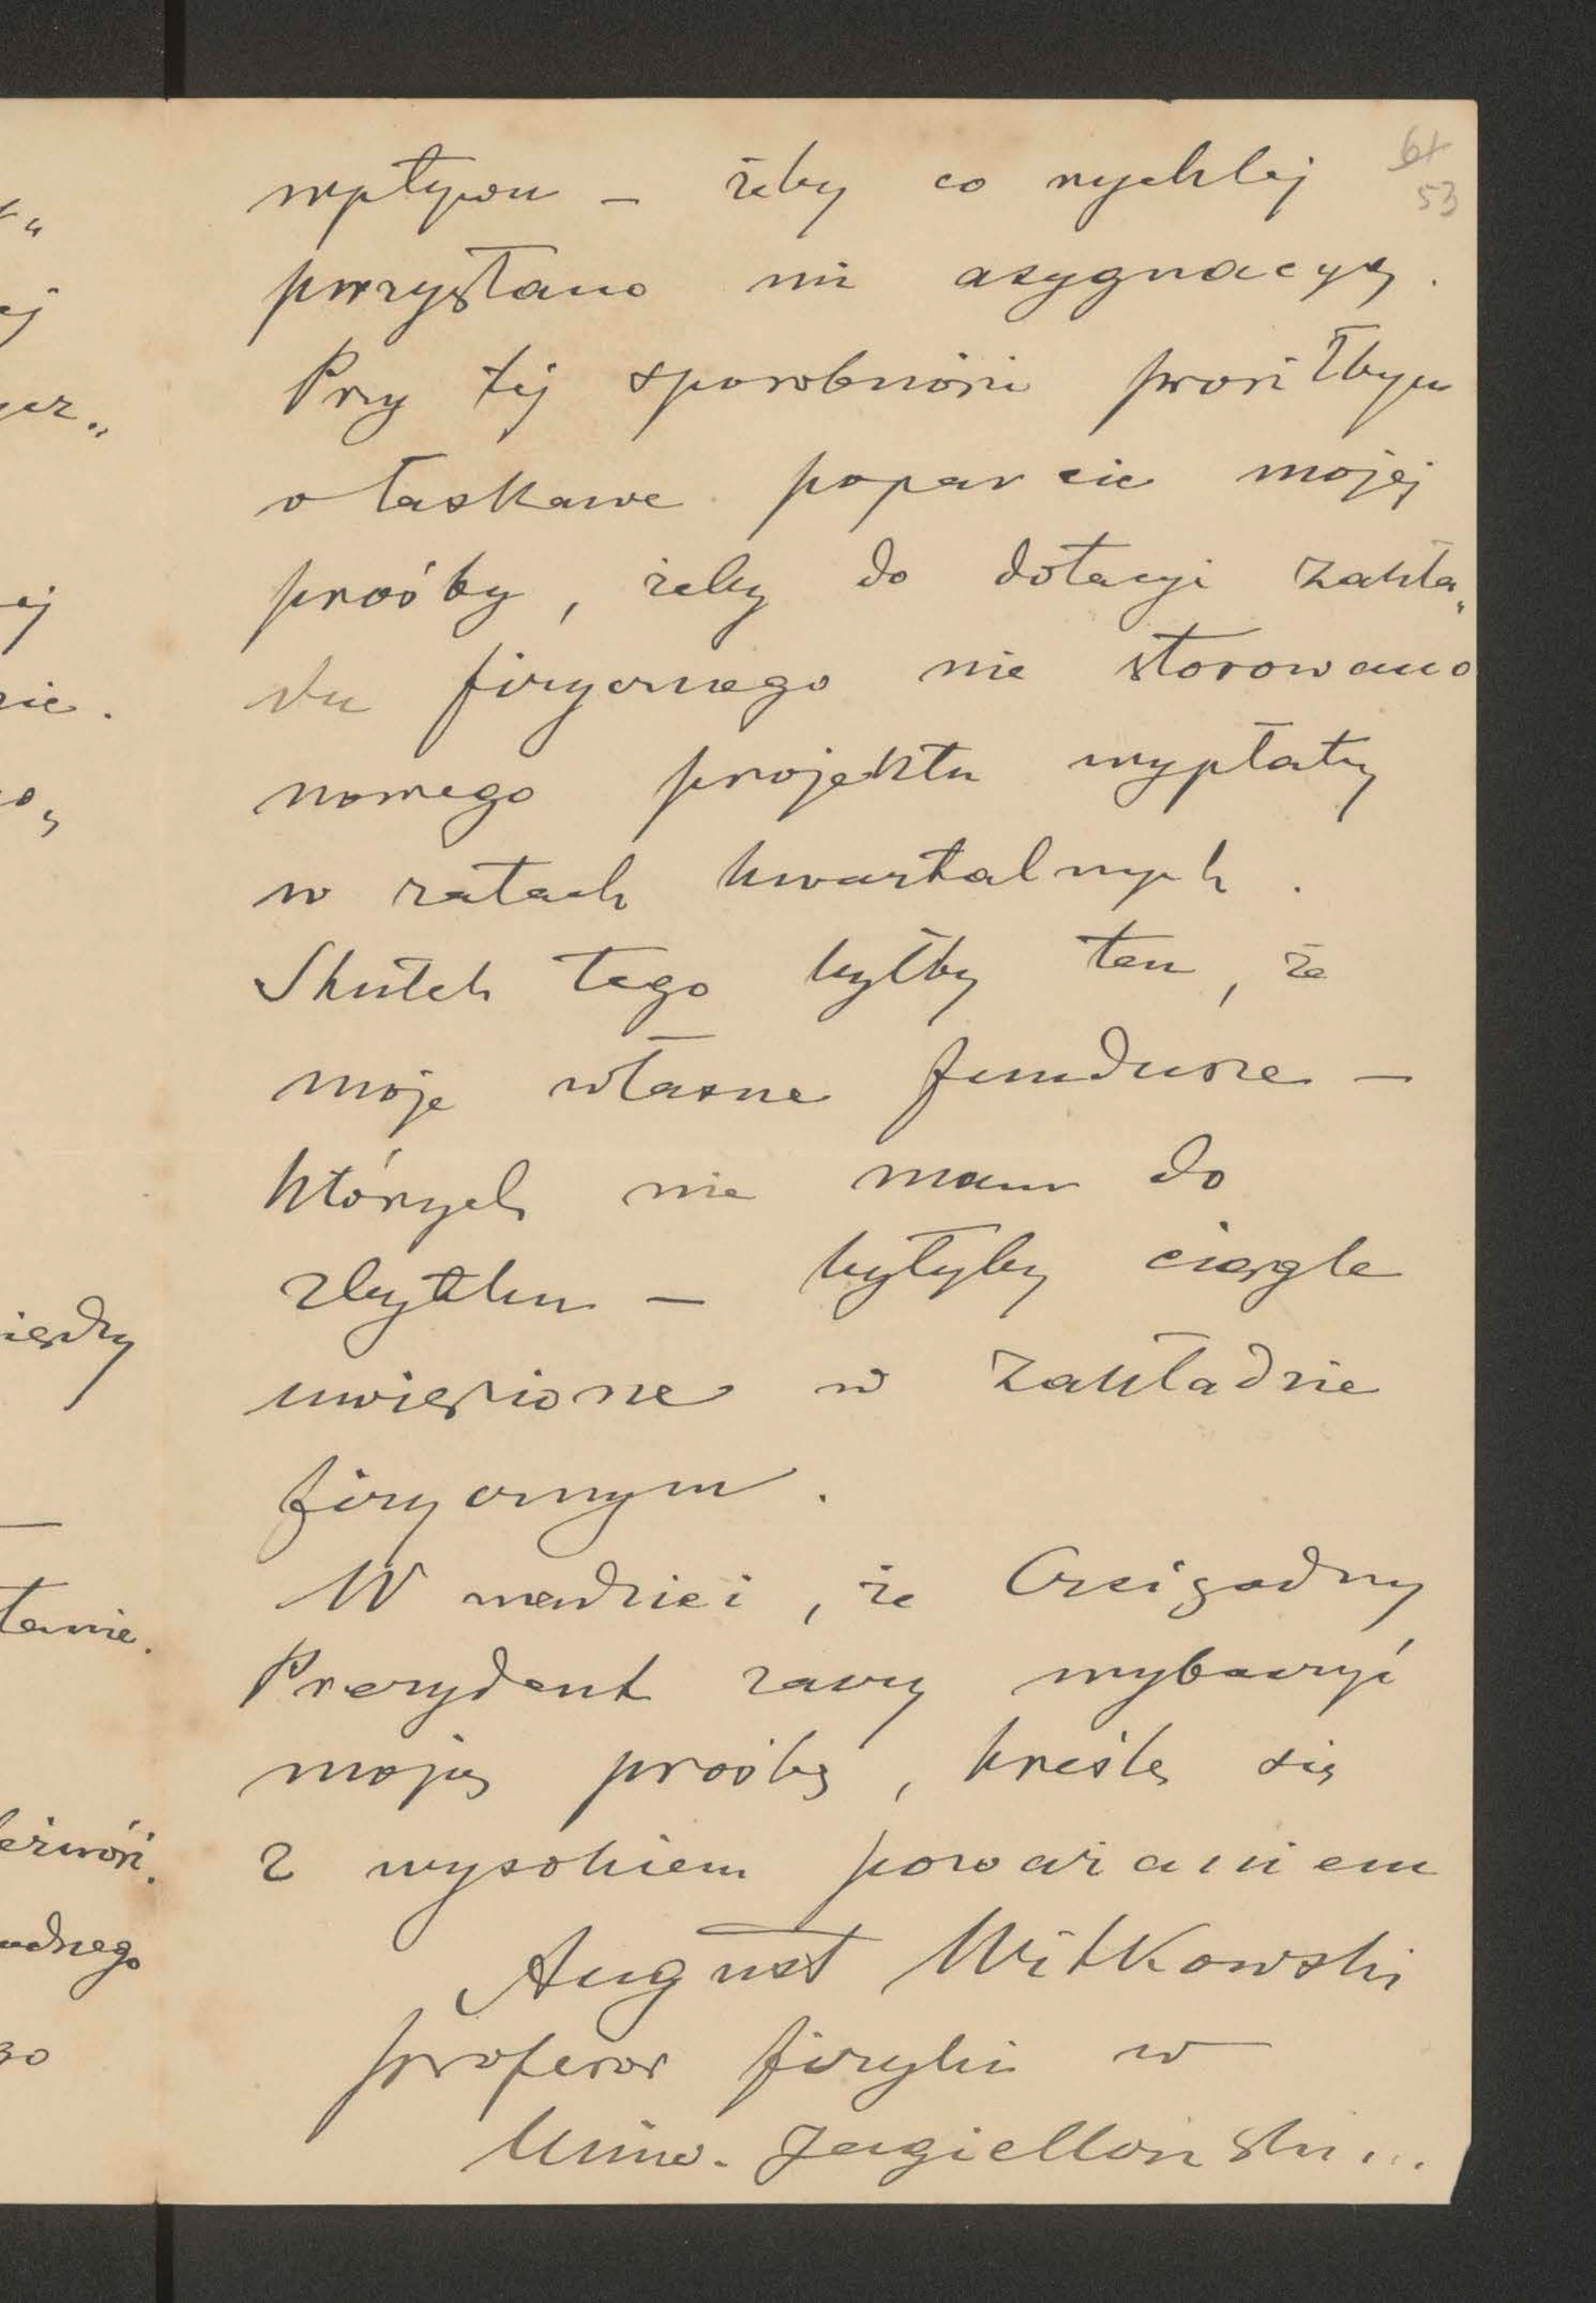 61
53
wpływu – żeby co rychlej
przysłano mi asygnacyę.
Przy tej sposobności prosiłbym
o łaskawe poparcie mojej
prośby, żeby do dotacyi zakła„
du fizycznego nie stosowano
nowego projektu wypłaty
w ratach kwartalnych.
Skutek tego byłby ten, że
moje własne fundusze –
których nie mam do
zbytku – byłyby ciągle
uwięzione w zakładzie
fizycznym.
W nadziei, że Czcigodny
Prezydent raczy wybaczyć
moją prośbę, kreślę się
z wysokiem poważaniem
August Witkowski
profesor fizyki w
Uniw. Jagiellońsk...
iędzy
adnego